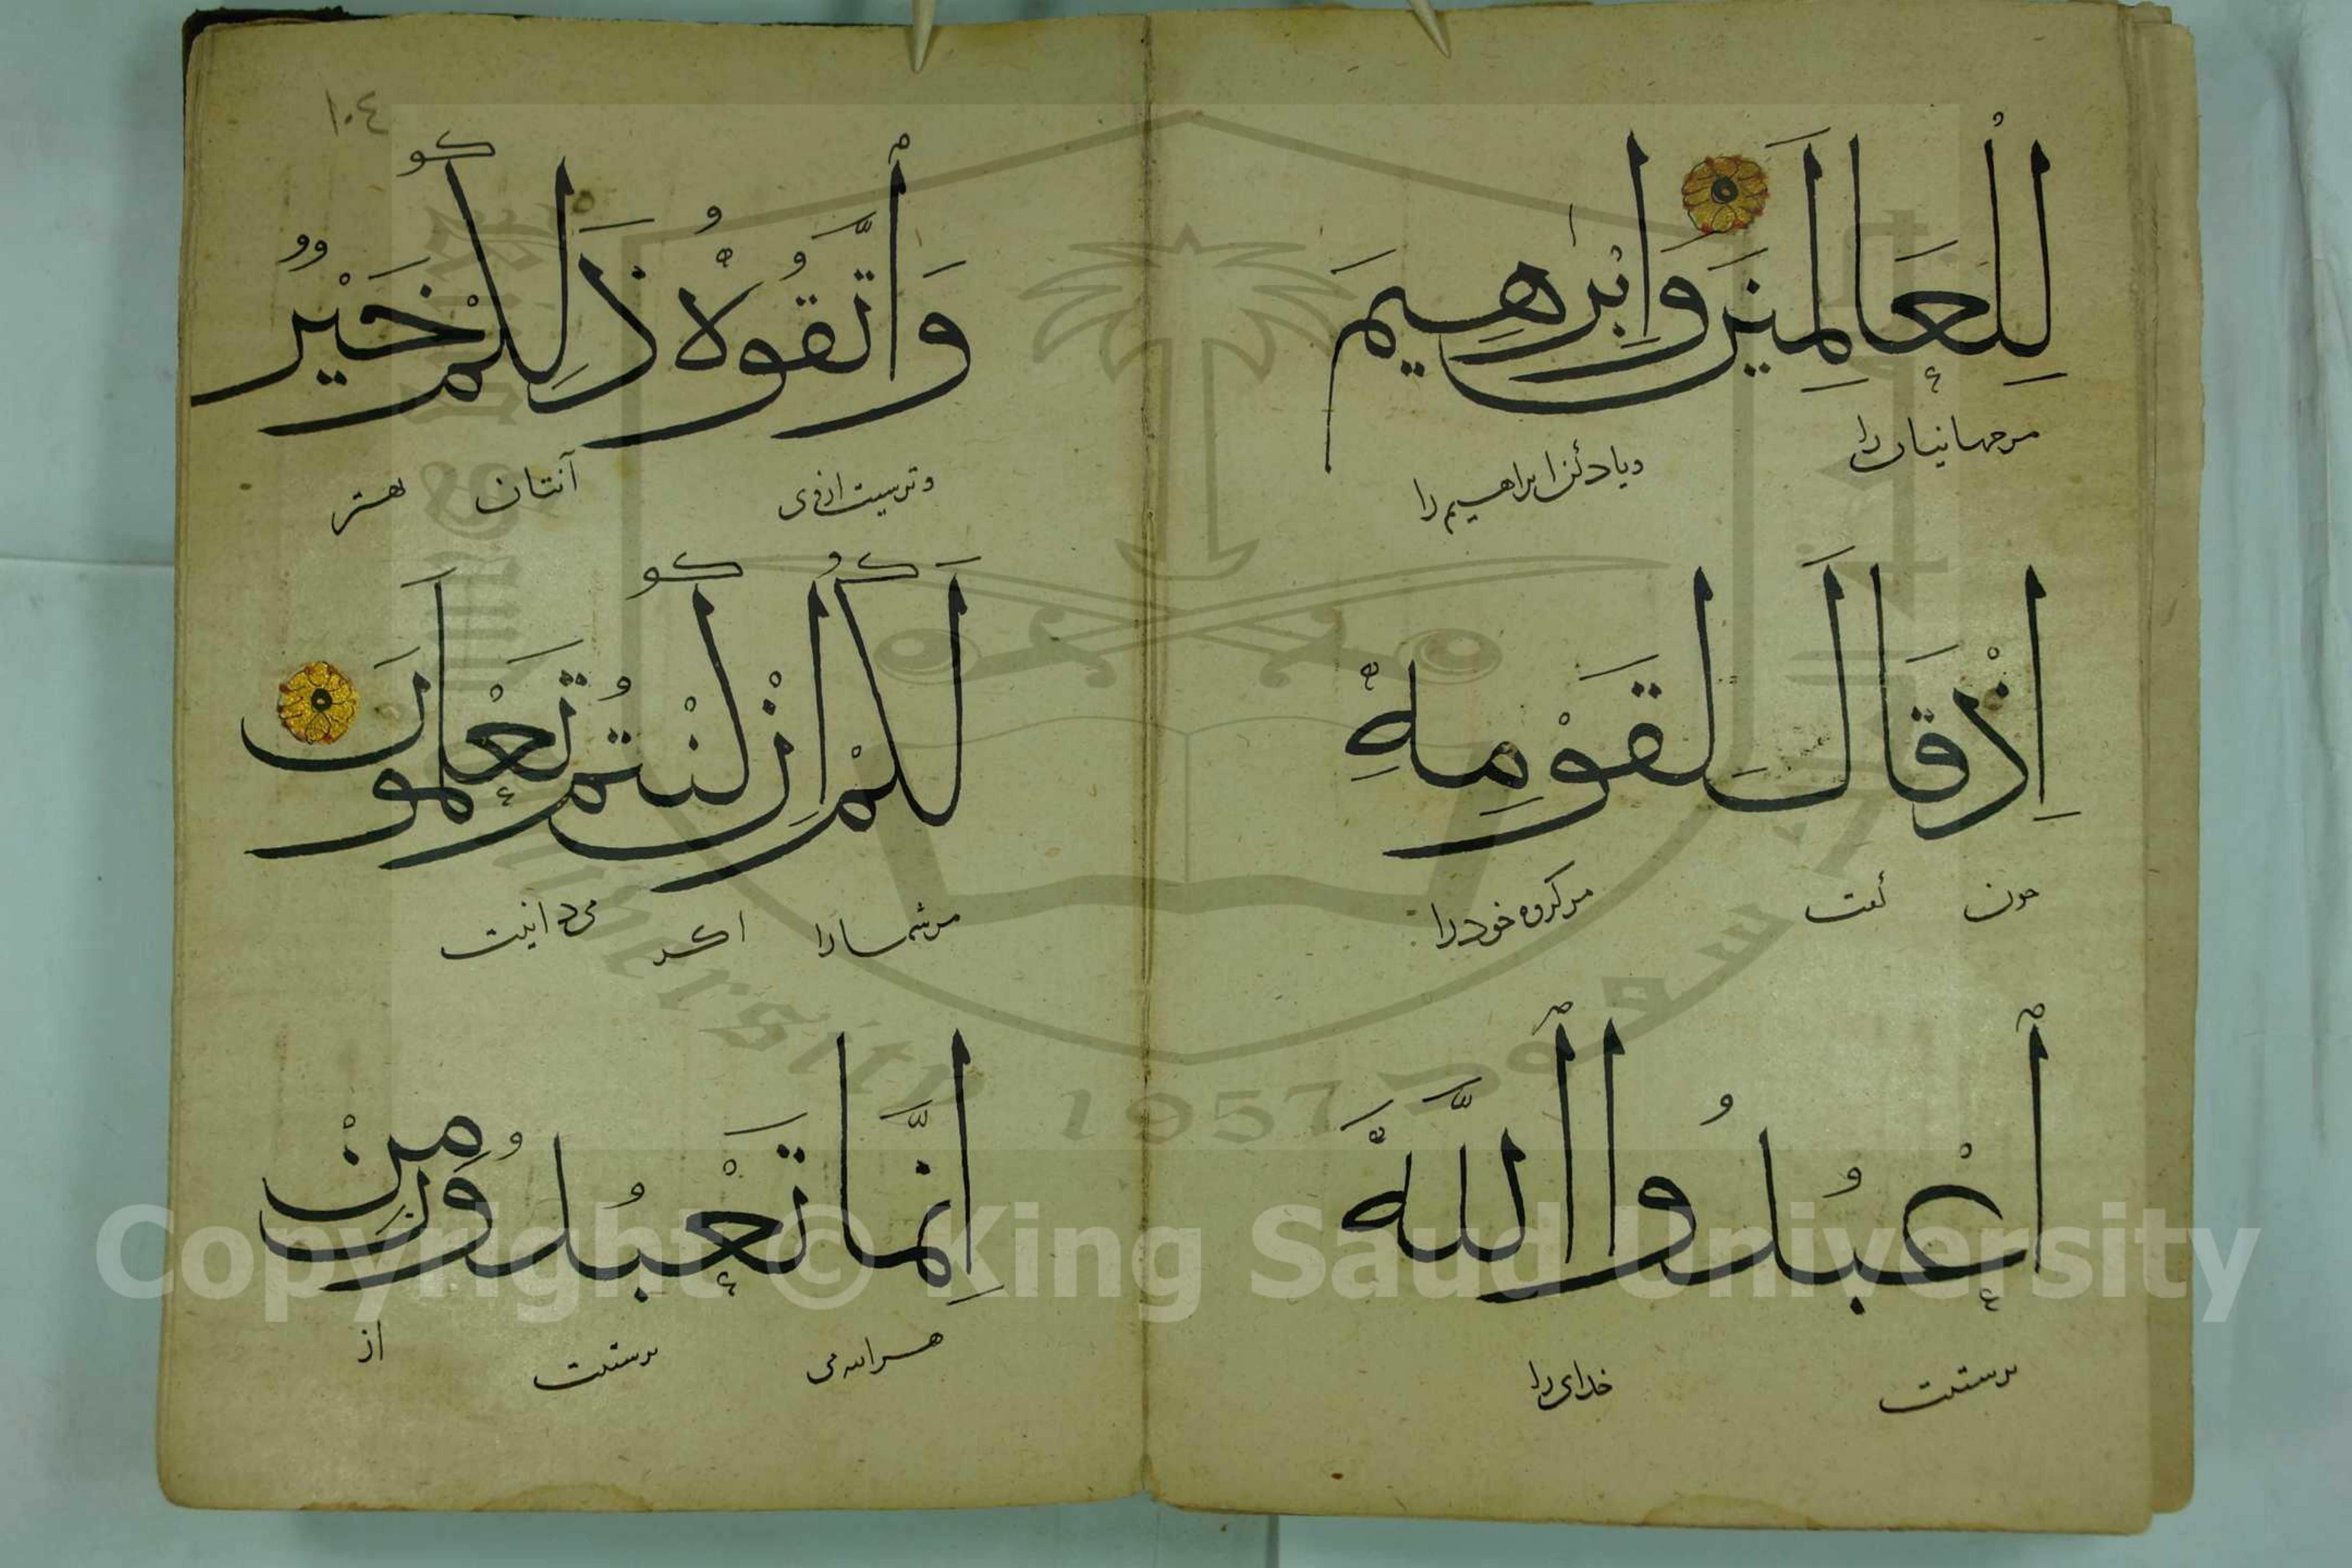 لِلْعَالَمِينَ وَإِبْرَهِيمَ
مرجهانیان را ویاد کن ابراهیم را
إِذْ قَالَ لِقَوْمِهِ
چون گفت مر گروه خود را
ٱعْبُدُوا ٱللَّهَ
پرستیت خدای را
١٠٤
وَٱتَّقُوهُ ذَلِكُمْ خَيْرٌ
وترسیت ازوی آنتان بهتر
لَكُمْ إِنْ كُنْتُمْ تَعْلَمُونَ
مرشما را اگر می دانیت
إِنَّمَا تَعْبُدُونَ مِنْ
می پرستیت از
Copyright © King Saud University
King Saud University 1957